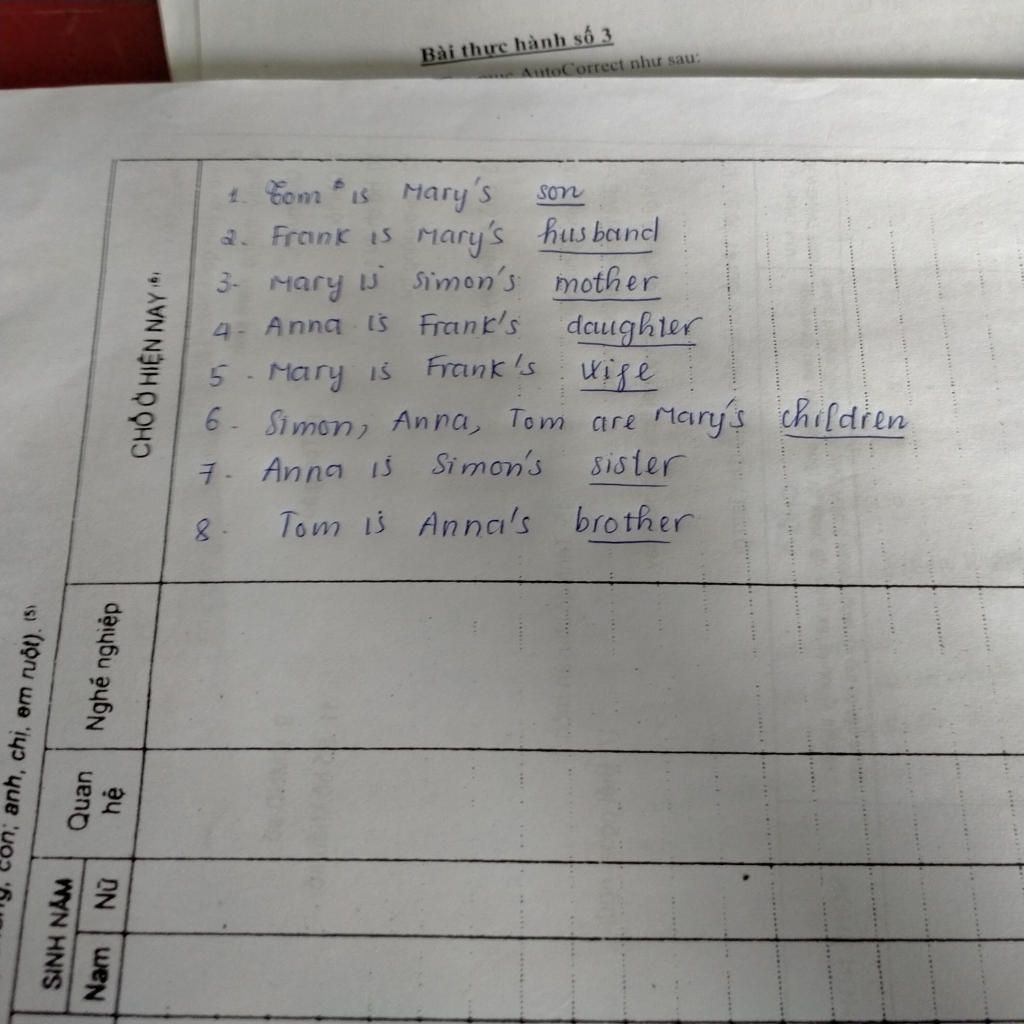 Bài thực hành số 3
AutoCorrect như sau:
1. Tom is Mary's son
2. Frank is Mary's husband
3- Mary is Simon's mother
4- Anna is Frank's daughter
5- Mary is Frank's wife
6- Simon, Anna, Tom are Mary's children
7- Anna is Simon's sister
8- Tom is Anna's brother
CHỖ Ở HIỆN NAY (6)
Nghề nghiệp
Quan hệ
SINH NĂM
Nam Nữ
con; anh, chị, em ruột). (5)